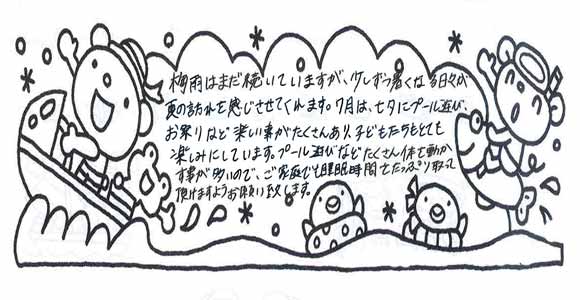 梅雨はまだ続いていますが、少しずつ暑くなる日々が
夏の訪れを感じさせてくれます。7月は、七夕にプール遊び、
お祭りなど楽しい事がたくさんあり、子どもたちもとても
楽しみにしています。プール遊びなどたくさん体を動か
す事が多いので、ご家庭でも睡眠時間をたっぷり取って
頂けますようお願い致します。